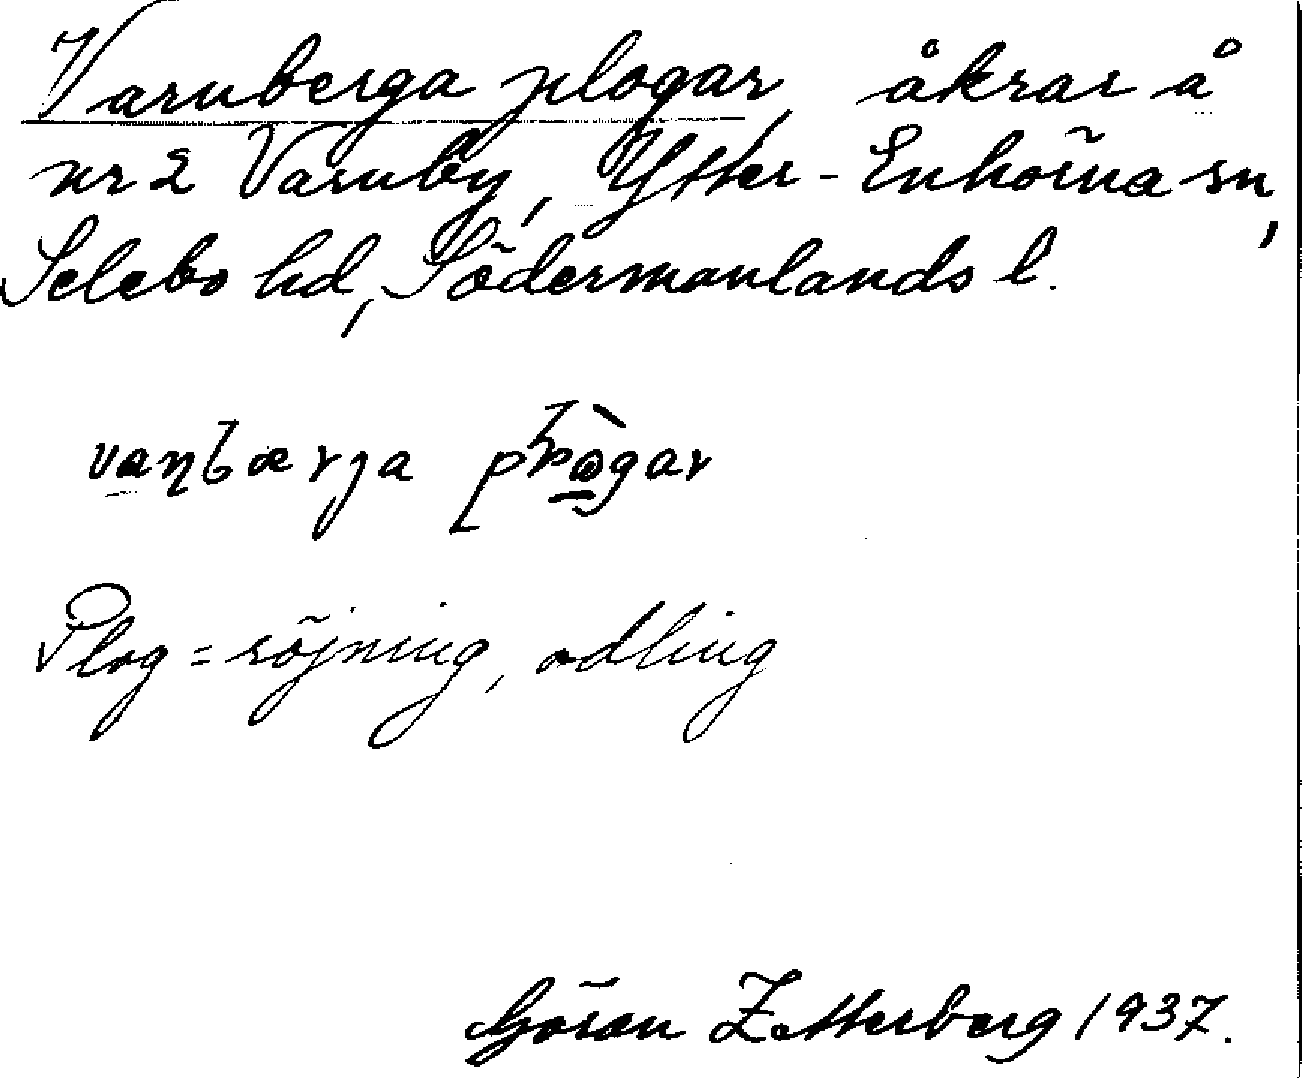 Varnberga plogar, åkrar å
nr 2 Varnby, Ytter-Enhörna sn,
Selebo hd, Södermanlands l.
Plog = röjning, odling
Göran Zetterberg 1937.